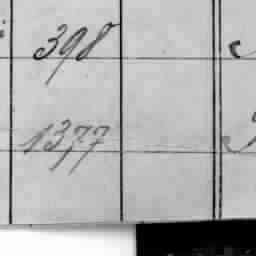 398
1377